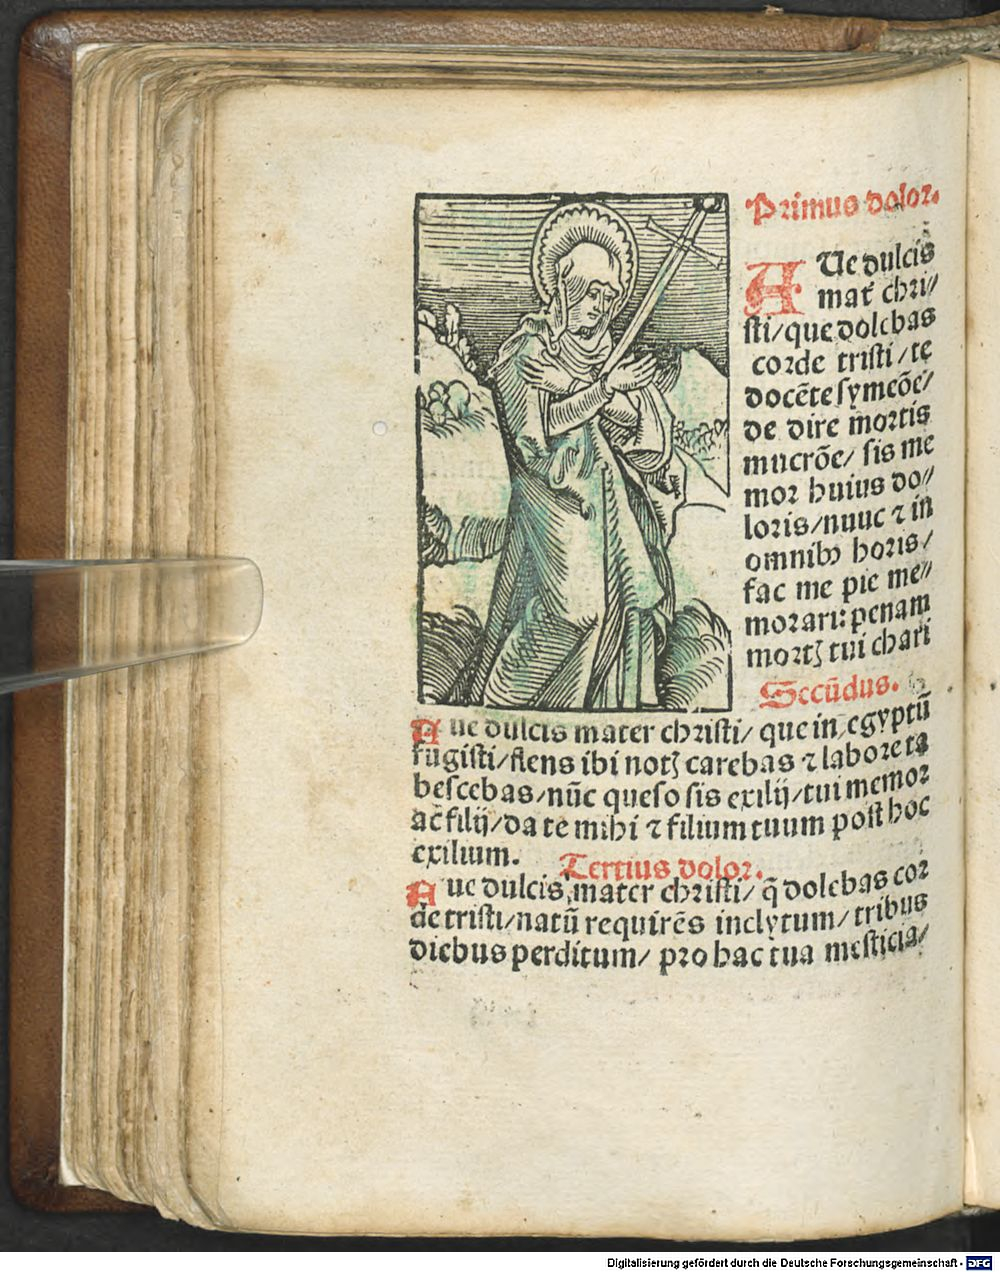 Primus dolor.
AUe dulcis
mat᷑ chri//
sti/que dolebas
corde tristi/te
docẽte symeõe/
de dire mortis
mucrõe/ sis me
mor huius do//
loris/nunc ⁊ in
omnibꝰ horis/
fac me pie me//
morari: penam
mortꝫ tui chari
Secũdus.
Aue dulcis mater christi/ que in egyptũ
fugisti/flens ibi notꝫ carebas ⁊ labore ta
bescebas/nũc queso sis exilij/tui memor
ac̃ filij/da te mihi ⁊ filium tuum post hoc
exilium.
Tertius dolor.
Aue dulcis mater christi/ q̃ dolebas cor
de tristi/natũ requirẽs inclytum/ tribus
diebus perditum/ pro hac tua mesticia/
Digitalisierung gefördert durch die Deutsche Forschungsgemeinschaft - DFG